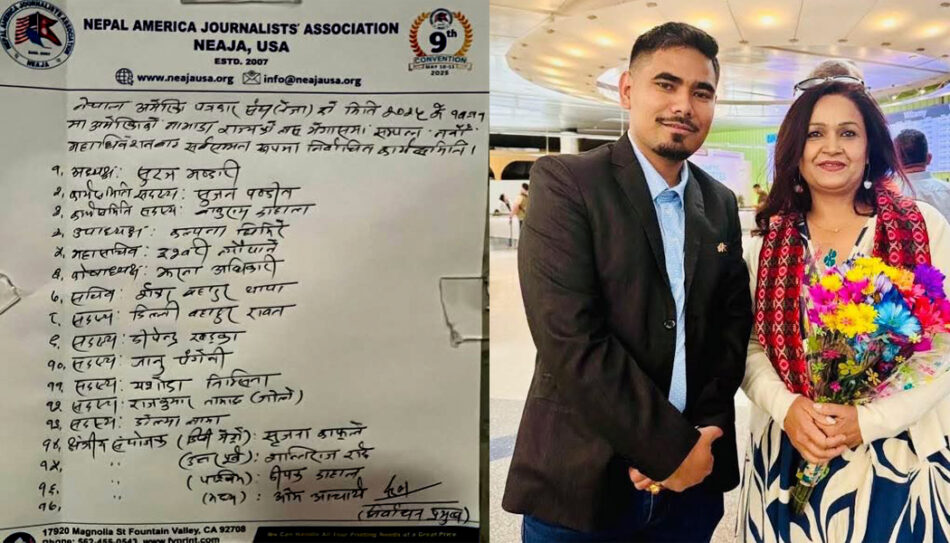 NEPAL AMERICA JOURNALISTS' ASSOCIATION
NEAJA, USA
ESTD. 2007
www.neajausa.org info@neajausa.org
NEAJA
9th
CONVENTION
MAY 10-11
2025
नेपाल अमेरिका पत्रकार संघ (नेजा) को मिति २०२५ मे १० र ११
मा अमेरिकाको नाभाडा राज्यको लस भेगासमा सम्पन्न नवौँ
महाधिवेशनबाट सर्वसम्मत रूपमा निर्वाचित कार्यसमिति।
१. अध्यक्ष: सुरज भण्डारी
२. कार्यसमिति सदस्य: सुजन पण्डित
३. कार्यसमिति सदस्य: बाबुराम दाहाल
४. उपाध्यक्ष: कल्पना घिमिरे
५. महासचिव: ईश्वरी न्यौपाने
६. कोषाध्यक्ष: झरना अधिकारी
७. सचिव: बहादुर थापा
८. सदस्य: डिल्ली बहादुर रावत
९. सदस्य: दीपेन्द्र खड्का
१०. सदस्य: जानु पंगेनी
११. सदस्य: यशोदा तिम्सिना
१२. सदस्य: राजकुमार तामाङ (गोले)
१३. सदस्य: डोल्मा लामा
१४. क्षेत्रीय संयोजक (डिसी मेट्रो): सुजना काफ्ले
१५. " (उत्तर पूर्व): शान्तिराज राई
१६. " (पश्चिम): दीपक दाहाल
१७. (मध्य): ओम आचार्य
(निर्वाचन प्रमुख)
17920 Magnolia St Fountain Valley, CA 92708
Phone: 562-456-0543 www.fvprint.com
We Can Handle All Your Printing Needs at a Great Price